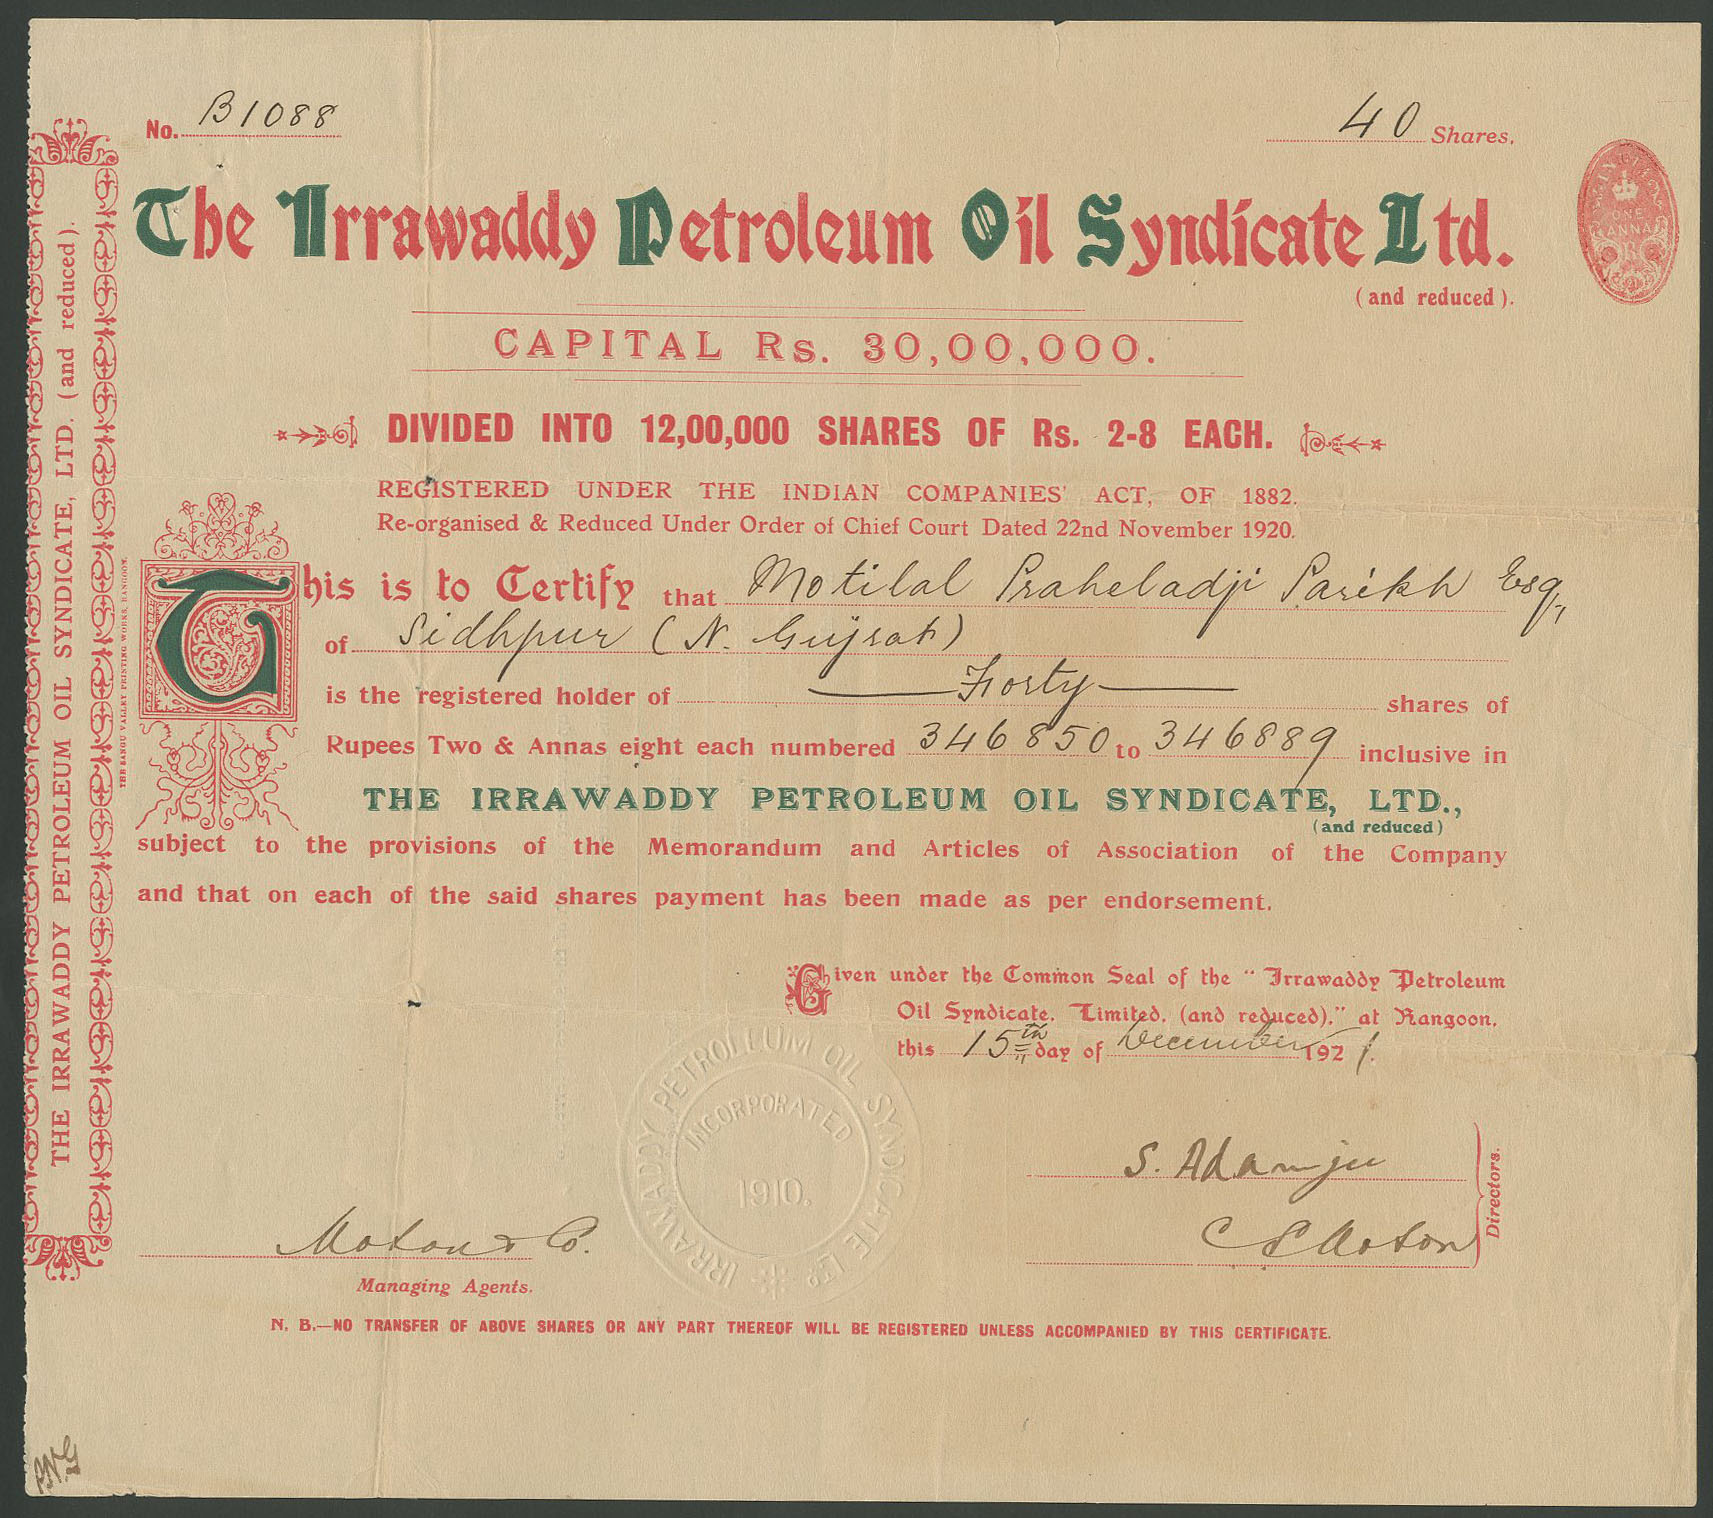 No. B1088
40 Shares.
The Irrawaddy Petroleum Oil Syndicate Ltd.
(and reduced).
CAPITAL Rs. 30,00,000.
DIVIDED INTO 12,00,000 SHARES OF Rs. 2-8 EACH.
REGISTERED UNDER THE INDIAN COMPANIES' ACT, OF 1882.
Re-organised & Reduced Under Order of Chief Court Dated 22nd November 1920.
This is to Certify that Motilal Praheladji Parikh Esq.,
of Sidhpur (N. Gujrat)
is the registered holder of Forty shares of
Rupees Two & Annas eight each numbered 346850 to 346889 inclusive in
THE IRRAWADDY PETROLEUM OIL SYNDICATE, LTD.,
(and reduced)
subject to the provisions of the Memorandum and Articles of Association of the Company
and that on each of the said shares payment has been made as per endorsement.
Given under the Common Seal of the "Irrawaddy Petroleum
Oil Syndicate, Limited, (and reduced)," at Rangoon,
this 15th day of December 1921.
S. Adamjee
Directors.
Managing Agents.
N. B.—NO TRANSFER OF ABOVE SHARES OR ANY PART THEREOF WILL BE REGISTERED UNLESS ACCOMPANIED BY THIS CERTIFICATE.
THE IRRAWADDY PETROLEUM OIL SYNDICATE, LTD. (and reduced).
THE HANGU VALLEY PRINTING WORKS, RANGOON.
IRRAWADDY PETROLEUM OIL SYNDICATE LTD
INCORPORATED
1910.
ONE
ANNA